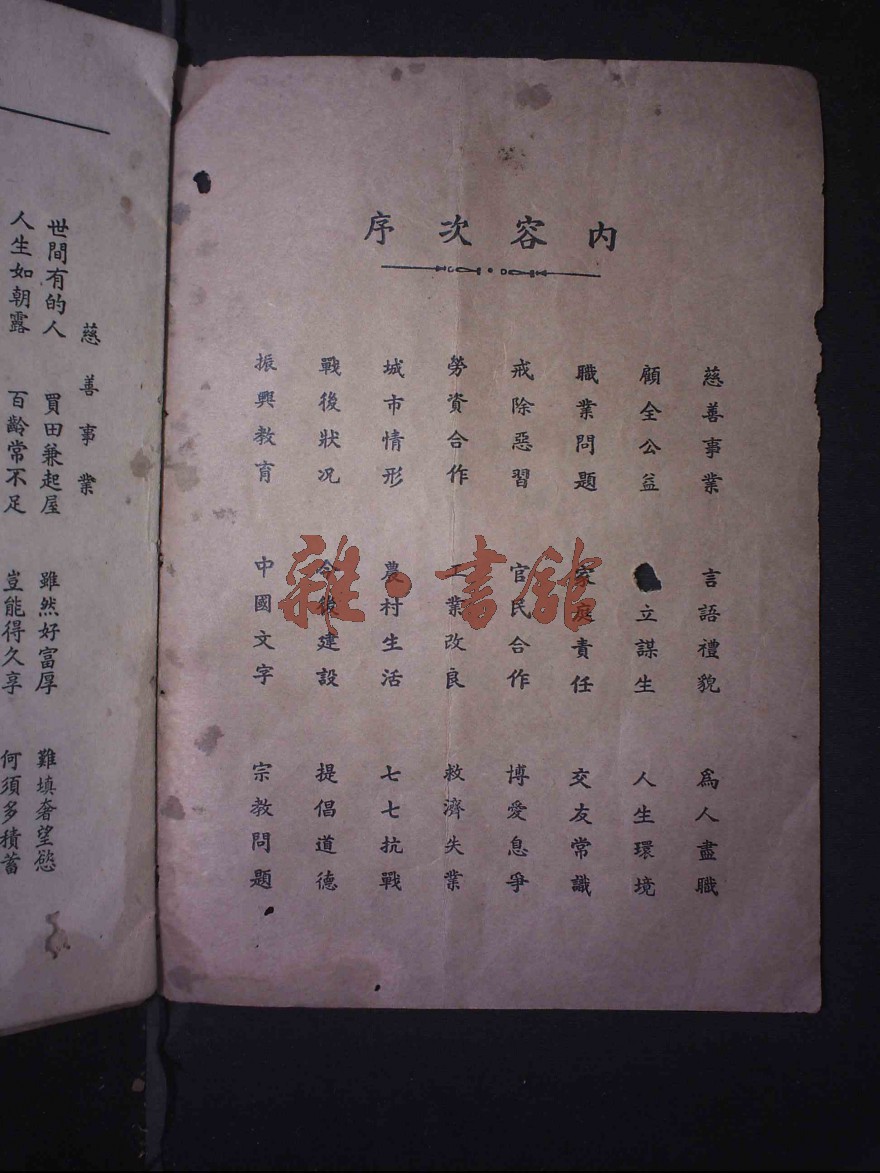 內容次序
慈善事業 言語禮貌 為人盡職
顧全公益 立謀生 人生環境
職業問題 家庭責任 交友常識
戒除惡習 官民合作 博愛息爭
勞資合作 工業改良 救濟失業
城市情形 農村生活 七七抗戰
戰後狀况 今後建設 提倡道德
振興教育 中國文字 宗教問題
慈善事業
世間有的人 買田兼起屋 雖然好富厚 難填奢望慾
人生如朝露 百齡常不足 豈能得久享 何須多積蓄
雜·書館